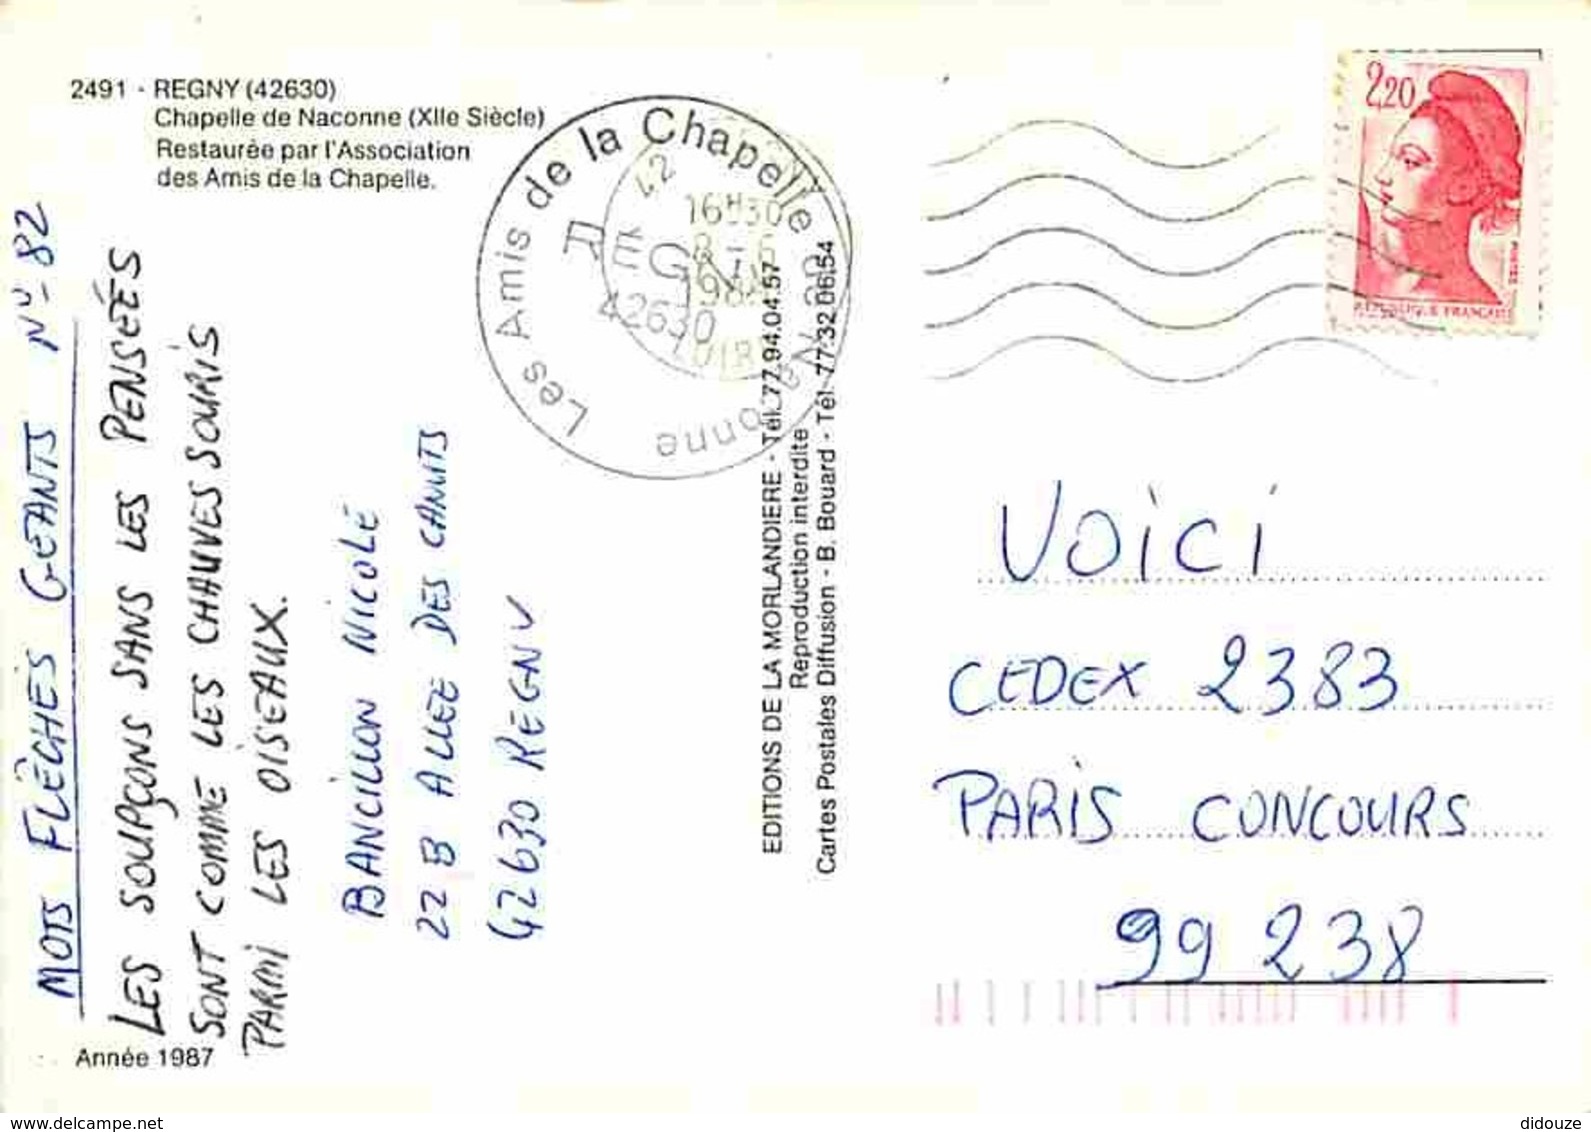 2491 - REGNY (42630)
Chapelle de Naconne (XIIe Siècle)
Restaurée par l'Association
des Amis de la Chapelle.
Les Amis de la Chapelle de Naconne
42
REGNY
42630
16H30
LOIRE
2,20
REPUBLIQUE FRANÇAISE
POSTES
MOTS FLÈCHÉS GEANTS N° 82
LES SOUPÇONS SANS LES PENSÉES
SONT COMME LES CHAUVES SOURIS
PARMI LES OISEAUX.
BANCILLON NICOLE
22 B ALLEE DES CANUTS
42630 REGNY
EDITIONS DE LA MORLANDIERE - Tél. 77.94.04.57
Reproduction interdite
Cartes Postales Diffusion - B. Bouard - Tél. 77.32.06.54
VOICI
CEDEX 2383
PARIS CONCOURS
99 238
Année 1987
www.delcampe.net
didouze